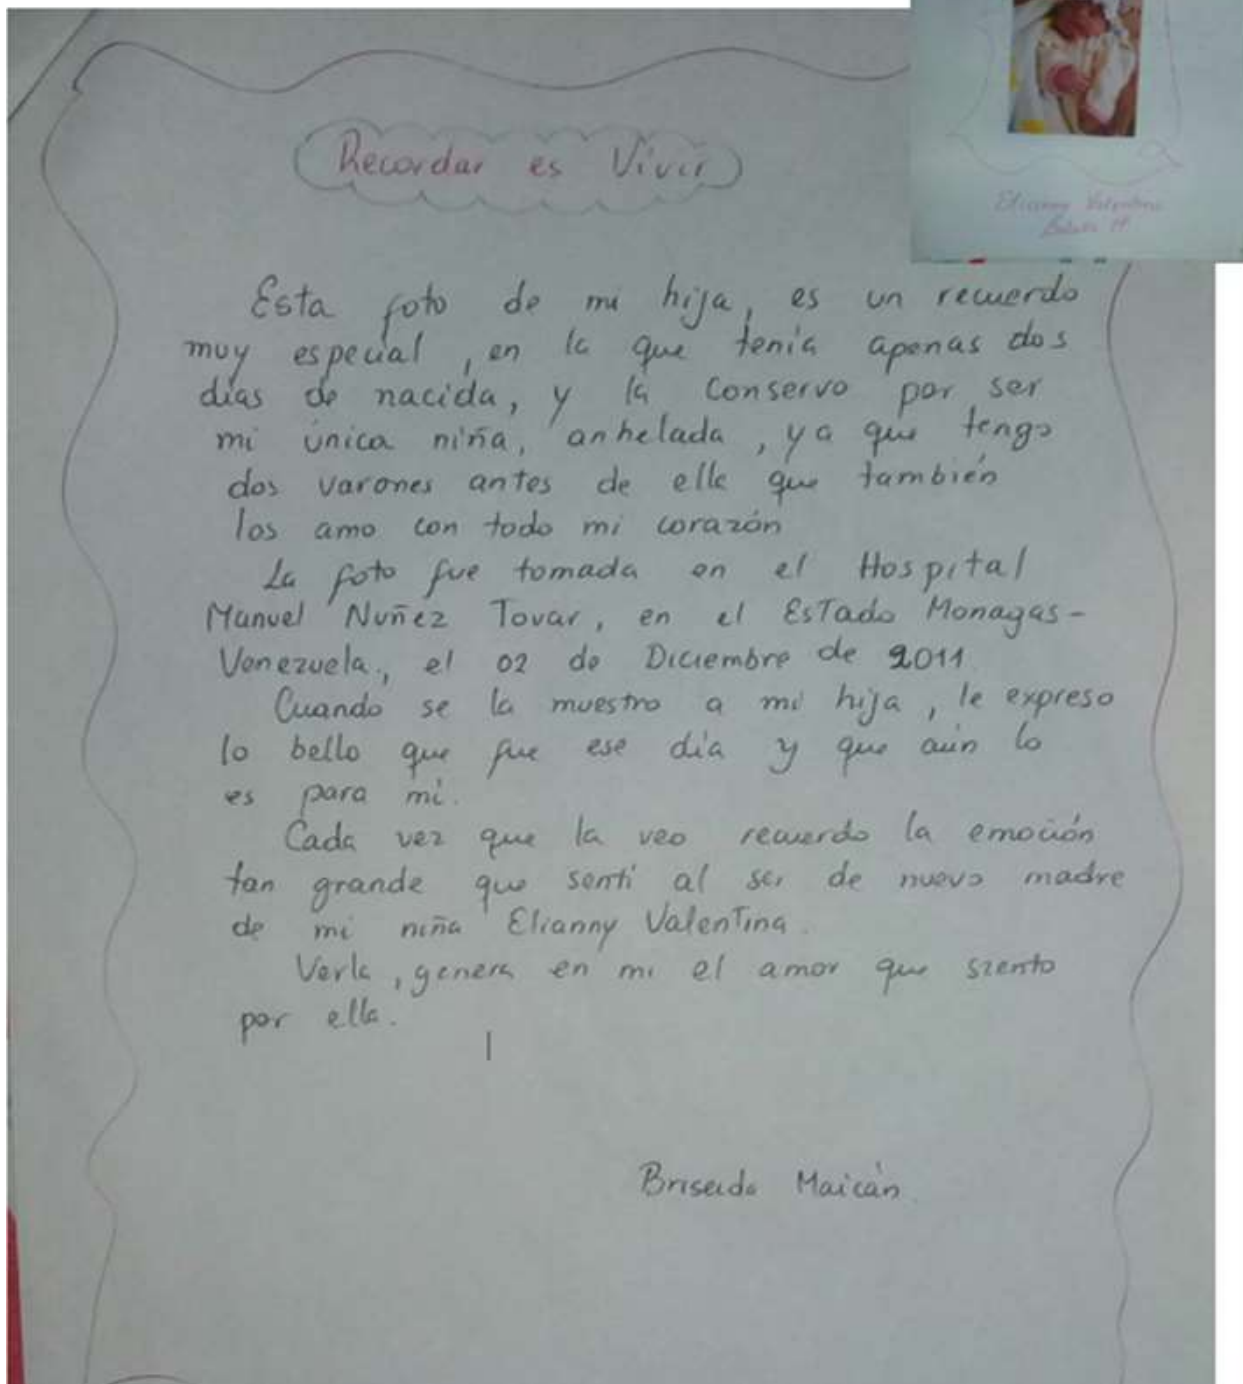 Recordar es Vivir
Elianny Valentina
Esta foto de mi hija, es un recuerdo
muy especial, en la que tenía apenas dos
días de nacida, y la conservo por ser
mi única niña, anhelada, ya que tengo
dos varones antes de ella que también
los amo con todo mi corazón
La foto fue tomada en el Hospital
Manuel Nuñez Tovar, en el Estado Monagas-
Venezuela., el 02 de Diciembre de 2011
Cuando se la muestro a mi hija, le expreso
lo bello que fue ese día y que aún lo
es para mí.
Cada vez que la veo recuerdo la emoción
tan grande que sentí al ser de nuevo madre
de mi niña Elianny Valentina.
Verla, genera en mi el amor que siento
por ella.
Briseida Maicán.